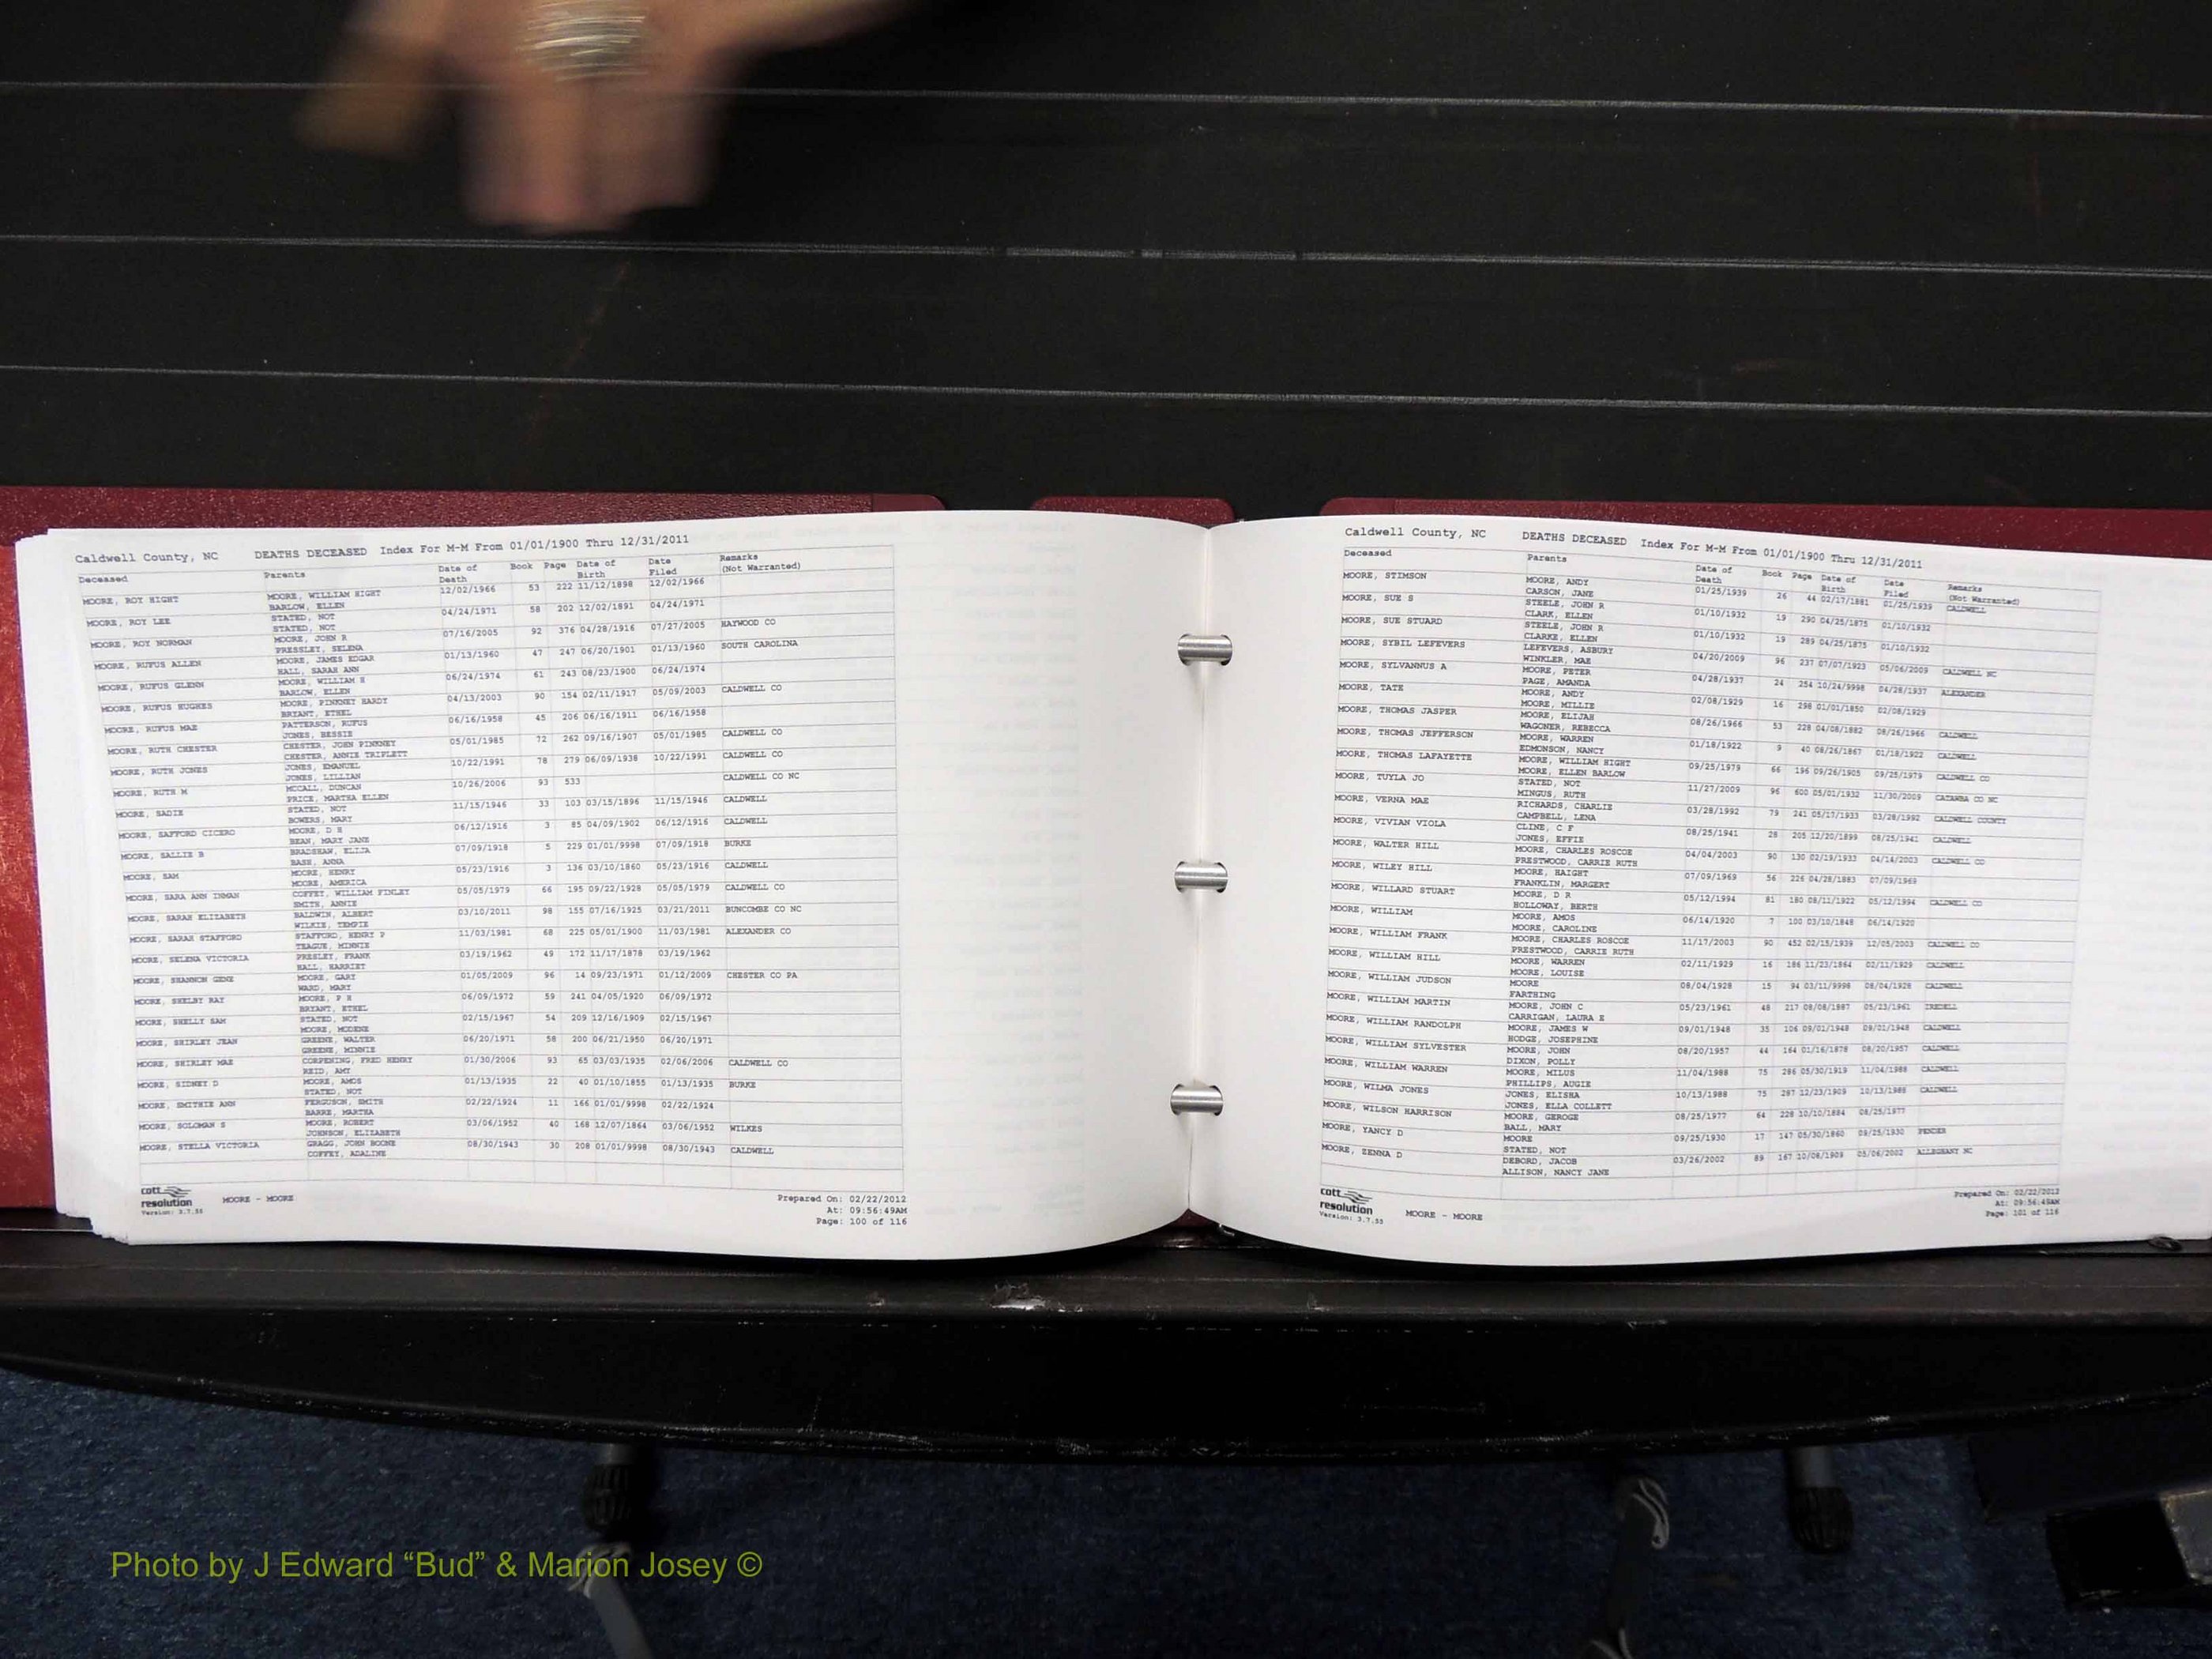 Caldwell County, NC DEATHS DECEASED Index For M-M From 01/01/1900 Thru 12/31/2011
Deceased Parents Date of Death Book Page Date of Birth Date Filed Remarks (Not Warranted)
MOORE, ROY HIGHT MOORE, WILLIAM HIGHT 12/02/1966 53 222 11/12/1898 12/02/1966
BARLOW, ELLEN
MOORE, ROY LEE STATED, NOT 04/24/1971 58 202 12/02/1891 04/24/1971
STATED, NOT
MOORE, ROY NORMAN MOORE, JOHN R 07/16/2005 92 376 04/28/1916 07/27/2005 HAYWOOD CO
PRESSLEY, SELENA
MOORE, RUFUS ALLEN MOORE, JAMES EDGAR 01/13/1960 47 247 06/20/1901 01/13/1960 SOUTH CAROLINA
HALL, SARAH ANN
MOORE, RUFUS GLENN MOORE, WILLIAM H 06/24/1974 61 243 08/23/1900 06/24/1974
BARLOW, ELLEN
MOORE, RUFUS HUGHES MOORE, PINKNEY HARDY 04/13/2003 90 154 02/11/1917 05/09/2003 CALDWELL CO
BRYANT, ETHEL
MOORE, RUFUS MAE PATTERSON, RUFUS 06/16/1958 45 206 06/16/1911 06/16/1958
JONES, BESSIE
MOORE, RUTH CHESTER CHESTER, JOHN PINKNEY 05/01/1985 72 262 09/16/1907 05/01/1985 CALDWELL CO
CHESTER, ANNIE TRIPLETT
MOORE, RUTH JONES JONES, EMANUEL 10/22/1991 78 279 06/09/1938 10/22/1991 CALDWELL CO
JONES, LILLIAN
MOORE, RUTH M MCCALL, DUNCAN 10/26/2006 93 533 CALDWELL CO NC
PRICE, MARTHA ELLEN
MOORE, SADIE STATED, NOT 11/15/1946 33 103 03/15/1896 11/15/1946 CALDWELL
BOWERS, MARY
MOORE, SAFFORD CICERO MOORE, D H 06/12/1916 3 85 04/09/1902 06/12/1916 CALDWELL
BEAN, MARY JANE
MOORE, SALLIE B BRADSHAW, ELIJA 07/09/1918 5 229 01/01/9998 07/09/1918 BURKE
BASH, ANNA
MOORE, SAM MOORE, HENRY 05/23/1916 3 136 03/10/1860 05/23/1916 CALDWELL
MOORE, AMERICA
MOORE, SARA ANN INMAN COFFEY, WILLIAM FINLEY 05/05/1979 66 195 09/22/1928 05/05/1979 CALDWELL CO
SMITH, ANNIE
MOORE, SARAH ELIZABETH BALDWIN, ALBERT 03/10/2011 98 155 07/16/1925 03/21/2011 BUNCOMBE CO NC
WILKIE, TEMPIE
MOORE, SARAH STAFFORD STAFFORD, HENRY P 11/03/1981 68 225 05/01/1900 11/03/1981 ALEXANDER CO
TEAGUE, MINNIE
MOORE, SELENA VICTORIA PRESLEY, FRANK 03/19/1962 49 172 11/17/1878 03/19/1962
HALL, HARRIET
MOORE, SHANNON GENE MOORE, GARY 01/05/2009 96 14 09/23/1971 01/12/2009 CHESTER CO PA
WARD, MARY
MOORE, SHELBY RAY MOORE, P H 06/09/1972 59 241 04/05/1920 06/09/1972
BRYANT, ETHEL
MOORE, SHELLY SAM STATED, NOT 02/15/1967 54 209 12/16/1909 02/15/1967
MOORE, MODENE
MOORE, SHIRLEY JEAN GREENE, WALTER 06/20/1971 58 200 06/21/1950 06/20/1971
GREENE, MINNIE
MOORE, SHIRLEY MAE CORPENING, FRED HENRY 01/30/2006 93 65 03/03/1935 02/06/2006 CALDWELL CO
REID, AMY
MOORE, SIDNEY D MOORE, AMOS 01/13/1935 22 40 01/10/1855 01/13/1935 BURKE
STATED, NOT
MOORE, SMITHIE ANN FERGUSON, SMITH 02/22/1924 11 166 01/01/9998 02/22/1924
BARRE, MARTHA
MOORE, SOLOMAN S MOORE, ROBERT 03/06/1952 40 168 12/07/1864 03/06/1952 WILKES
JOHNSON, ELIZABETH
MOORE, STELLA VICTORIA GRAGG, JOHN BOONE 08/30/1943 30 208 01/01/9998 08/30/1943 CALDWELL
COFFEY, ADALINE
cott resolution
Version: 3.7.55
MOORE - MOORE
Prepared On: 02/22/2012
At: 09:56:49AM
Page: 100 of 116
Caldwell County, NC DEATHS DECEASED Index For M-M From 01/01/1900 Thru 12/31/2011
Deceased Parents Date of Death Book Page Date of Birth Date Filed Remarks (Not Warranted)
MOORE, STIMSON MOORE, ANDY 01/25/1939 26 44 02/17/1881 01/25/1939 CALDWELL
CARSON, JANE
MOORE, SUE S STEELE, JOHN R 01/10/1932 19 290 04/25/1875 01/10/1932
CLARK, ELLEN
MOORE, SUE STUARD STEELE, JOHN R 01/10/1932 19 289 04/25/1875 01/10/1932
CLARKE, ELLEN
MOORE, SYBIL LEFEVERS LEFEVERS, ASBURY 04/20/2009 96 237 07/07/1923 05/06/2009 CALDWELL NC
WINKLER, MAE
MOORE, SYLVANNUS A MOORE, PETER 04/28/1937 24 254 10/24/9998 04/28/1937 ALEXANDER
PAGE, AMANDA
MOORE, TATE MOORE, ANDY 02/08/1929 16 298 01/01/1850 02/08/1929
MOORE, MILLIE
MOORE, THOMAS JASPER MOORE, ELIJAH 08/26/1966 53 228 04/08/1882 08/26/1966 CALDWELL
WAGONER, REBECCA
MOORE, THOMAS JEFFERSON MOORE, WARREN 01/18/1922 9 40 08/26/1867 01/18/1922 CALDWELL
EDMONSON, NANCY
MOORE, THOMAS LAFAYETTE MOORE, WILLIAM HIGHT 09/25/1979 66 196 09/26/1905 09/25/1979 CALDWELL CO
MOORE, ELLEN BARLOW
MOORE, TUYLA JO STATED, NOT 11/27/2009 96 600 05/01/1932 11/30/2009 CATAWBA CO NC
MINGUS, RUTH
MOORE, VERNA MAE RICHARDS, CHARLIE 03/28/1992 79 241 05/17/1933 03/28/1992 CALDWELL COUNTY
CAMPBELL, LENA
MOORE, VIVIAN VIOLA CLINE, C F 08/25/1941 28 205 12/20/1899 08/25/1941 CALDWELL
JONES, EFFIE
MOORE, WALTER HILL MOORE, CHARLES ROSCOE 04/04/2003 90 130 02/19/1933 04/14/2003 CALDWELL CO
PRESTWOOD, CARRIE RUTH
MOORE, WILEY HILL MOORE, HAIGHT 07/09/1969 56 226 04/28/1883 07/09/1969
FRANKLIN, MARGERT
MOORE, WILLARD STUART MOORE, D R 05/12/1994 81 180 08/11/1922 05/12/1994 CALDWELL CO
HOLLOWAY, BERTH
MOORE, WILLIAM MOORE, AMOS 06/14/1920 7 100 03/10/1848 06/14/1920
MOORE, CAROLINE
MOORE, WILLIAM FRANK MOORE, CHARLES ROSCOE 11/17/2003 90 452 02/15/1939 12/05/2003 CALDWELL CO
PRESTWOOD, CARRIE RUTH
MOORE, WILLIAM HILL MOORE, WARREN 02/11/1929 16 186 11/23/1864 02/11/1929 CALDWELL
MOORE, LOUISE
MOORE, WILLIAM JUDSON MOORE 08/04/1928 15 94 03/11/9998 08/04/1928 CALDWELL
FARTHING
MOORE, WILLIAM MARTIN MOORE, JOHN C 05/23/1961 48 217 08/08/1887 05/23/1961 IREDELL
CARRIGAN, LAURA E
MOORE, WILLIAM RANDOLPH MOORE, JAMES W 09/01/1948 35 106 09/01/1948 09/01/1948 CALDWELL
HODGE, JOSEPHINE
MOORE, WILLIAM SYLVESTER MOORE, JOHN 08/20/1957 44 164 01/16/1878 08/20/1957 CALDWELL
DIXON, POLLY
MOORE, WILLIAM WARREN MOORE, MILUS 11/04/1988 75 286 05/30/1919 11/04/1988 CALDWELL
PHILLIPS, AUGIE
MOORE, WILMA JONES JONES, ELISHA 10/13/1988 75 287 12/23/1909 10/13/1988 CALDWELL
JONES, ELLA COLLETT
MOORE, WILSON HARRISON MOORE, GEROGE 08/25/1977 64 228 10/10/1884 08/25/1977
BALL, MARY
MOORE, YANCY D MOORE 09/25/1930 17 147 05/30/1860 09/25/1930 PENDER
STATED, NOT
MOORE, ZENNA D DEBORD, JACOB 03/26/2002 89 167 10/08/1909 05/06/2002 ALLEGHANY NC
ALLISON, NANCY JANE
cott resolution
Version: 3.7.55
MOORE - MOORE
Prepared On: 02/22/2012
At: 09:56:49AM
Page: 101 of 116
Photo by J Edward “Bud” & Marion Josey ©